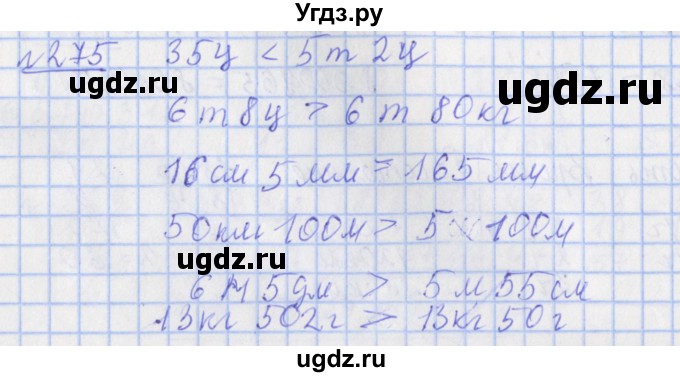 Угдз.ру
№275 35ц < 5т 2ц
ugdz.ru
6т 8ц > 6т 80кг
16см 5мм = 165мм
50км 100м > 5 100м
ugdz.ru
6м 5дм > 5м 55см
13кг 502г > 13кг 50г
ugdz.ru
ugdz.ru